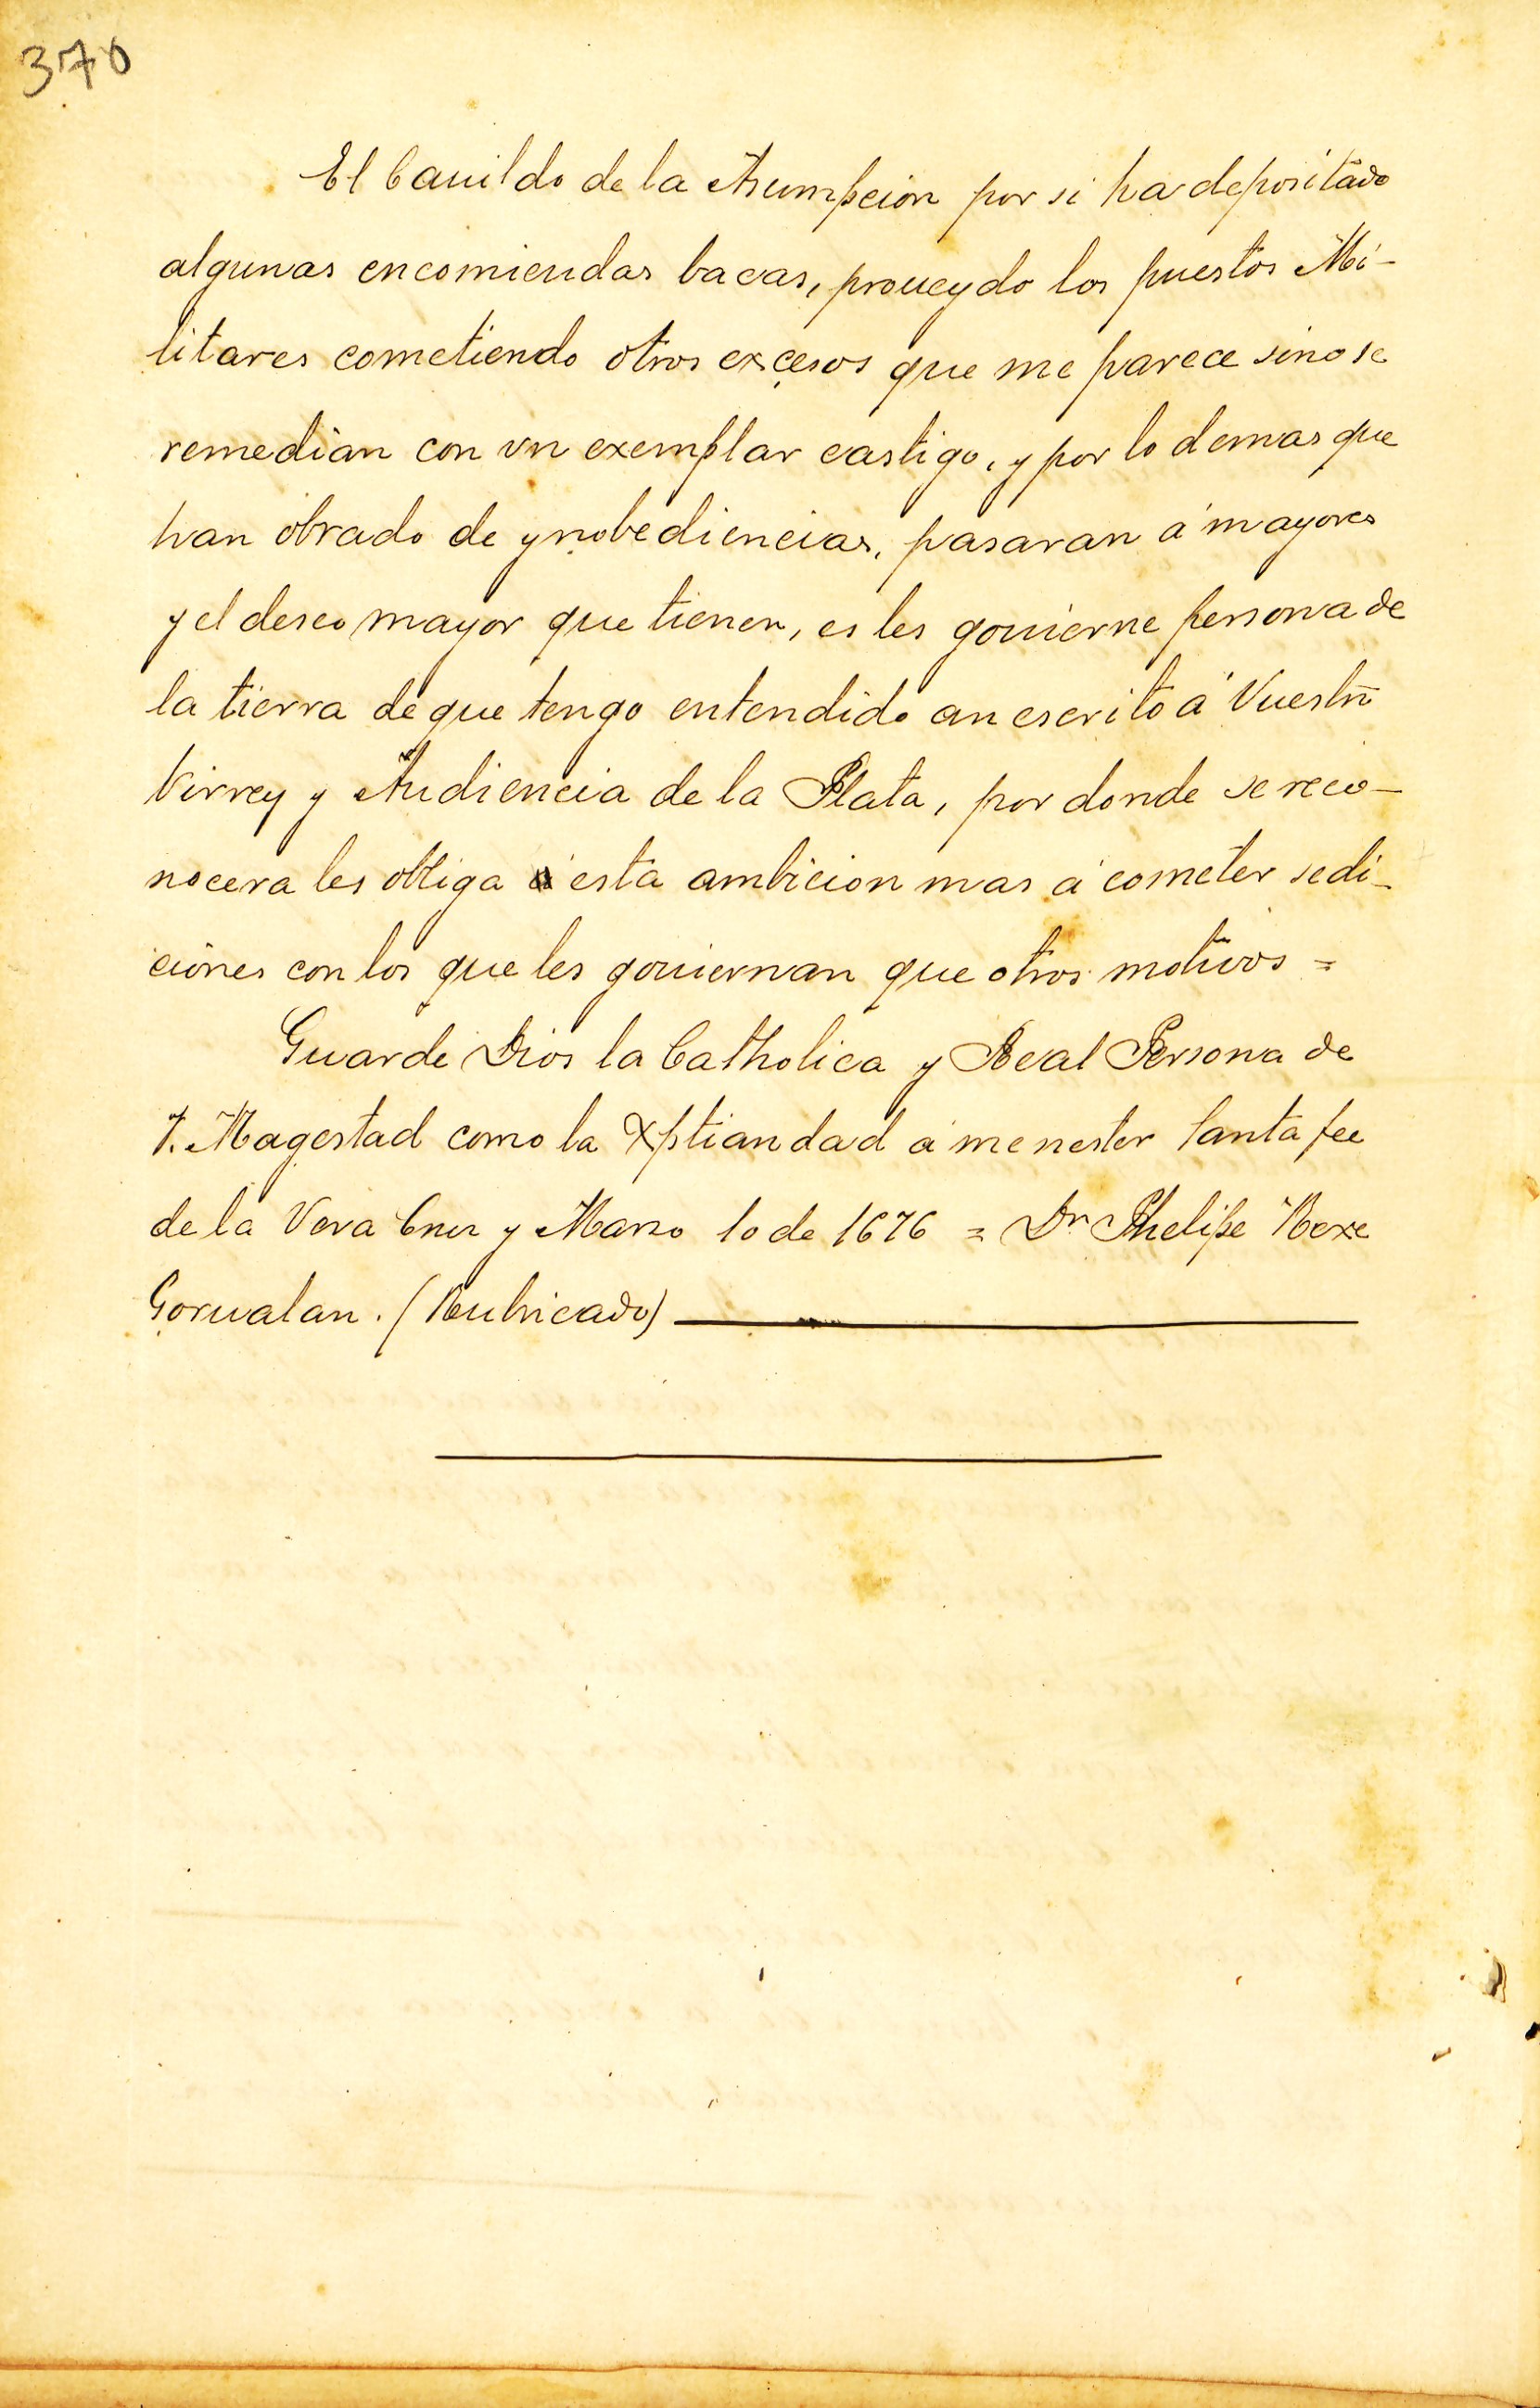 370
El Cauildo de la Asumpcion por si ha depositado
algunas encomiendas bacas, proueydo los puestos Mi-
litares cometiendo otros exçesos que me parece sino se
remedian con vn exemplar castigo, y por lo demas que
han obrado de ynobediencias, pasaran á mayores
y el deseo mayor que tienen, es les gouierne persona de
la tierra de que tengo entendido an escrito á Vuestro
Virrey y Audiencia de la Plata, por donde se reco-
nocera les obliga á esta ambicion mas á cometer sedi-
ciones con los que les gouiernan que otros motivos =
Guarde Dios la Catholica y Real Persona de
V. Magestad como la Xptiandad á menester Santa fee
de la Vera Cruz y Marzo 10 de 1676 = Dr Phelipe Rexe
Gorvalan. (Rubricado)